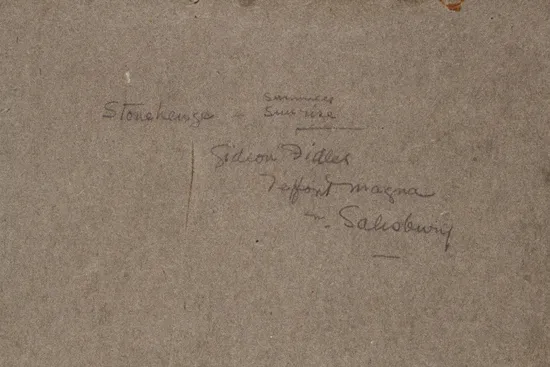 Stonehenge - Summer
Sunrise
Gideon Fidler
Teffont Magna
nr. Salisbury